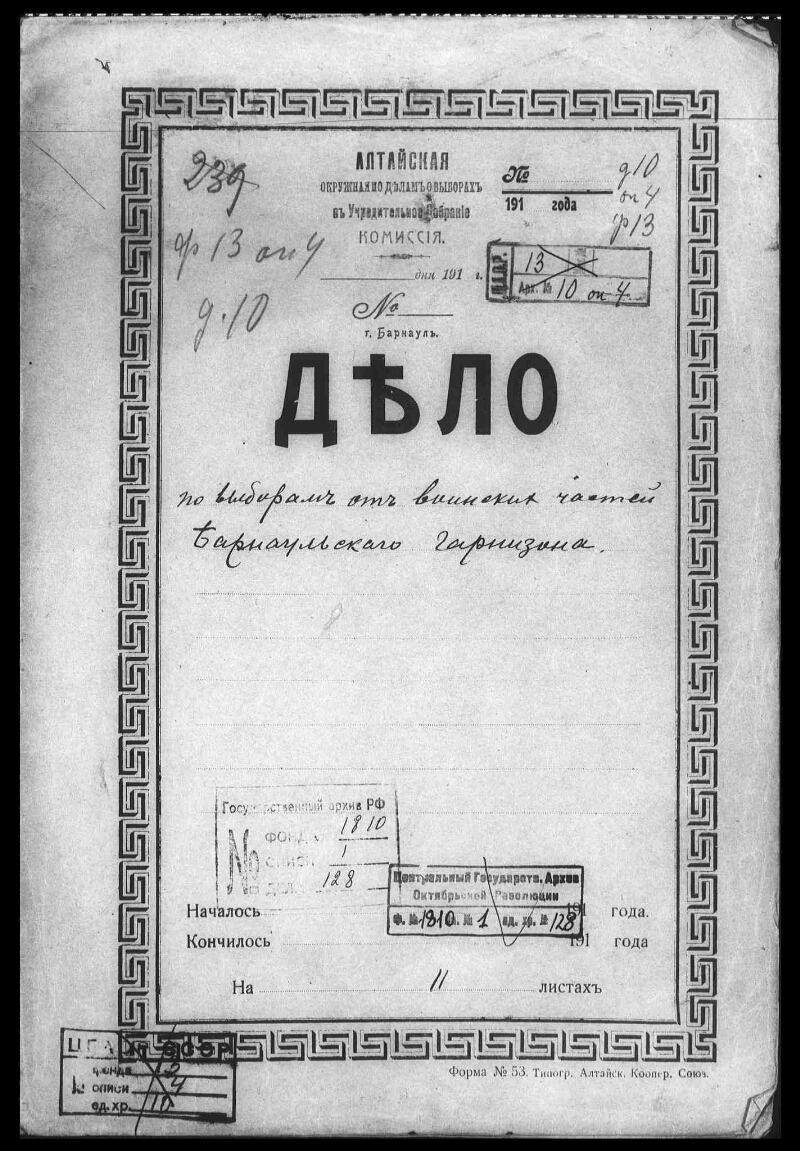 239
АЛТАЙСКАЯ
ОКРУЖНАЯ ПО ДѢЛАМЪ О ВЫБОРАХЪ
въ Учредительное Собраніе
КОМИССІЯ.
дня 191 г.
№
г. Барнаулъ.
ф 13 оп 4
д. 10
№
191 года
д 10
оп 4
ф 13
13
Арх. № 10 оп 4
ДѢЛО
по выборамъ отъ воинскихъ частей
Барнаульскаго гарнизона.
Государственный архив РФ
№
ФОНД 1810
ОПИСИ 1
ДЕЛА 128
Центральный Государств. Архив
Октябрьской Революции
Ф. № 1810 оп. № 1 ед. хр. № 128
Началось 191 года.
Кончилось 191 года
На 11 листахъ
СССР
№ фонда 13
описи 4
ед. хр. 10
Форма № 53. Типогр. Алтайск. Коопер. Союз.